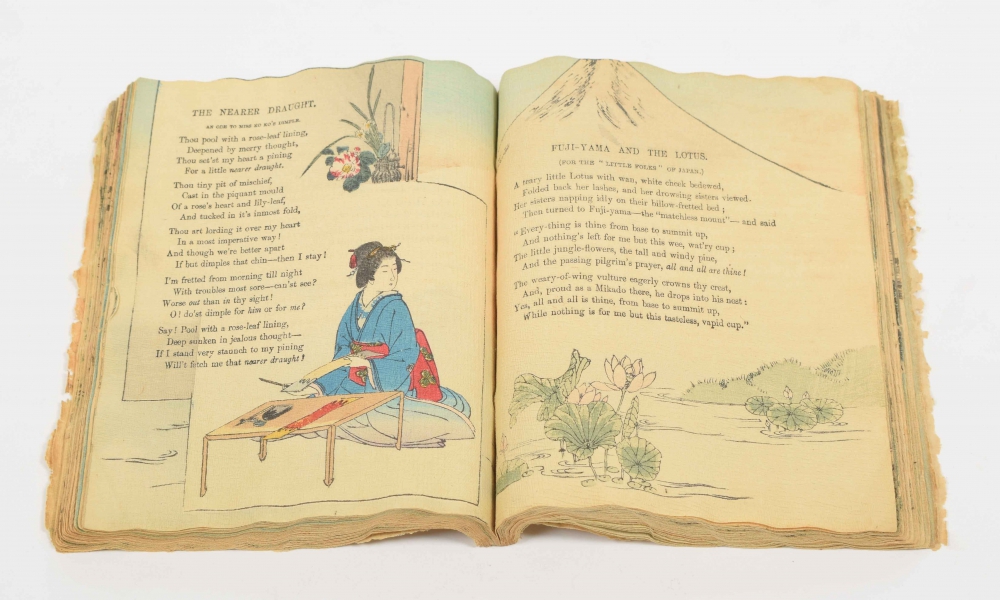 THE NEARER DRAUGHT.
AN ODE TO MISS NO KO'S DIMPLE.
Thou pool with a rose-leaf lining,
Deepened by merry thought,
Thou set'st my heart a pining
For a little nearer draught.
Thou tiny pit of mischief,
Cast in the piquant mould
Of a rose's heart and lily-leaf,
And tucked in it's inmost fold,
Thou art lording it over my heart
In a most imperative way!
And though we're better apart
If but dimples that chin—then I stay!
I'm fretted from morning till night
With troubles most sore—can'st see?
Worse out than in thy sight!
O! do'st dimple for him or for me?
Say! Pool with a rose-leaf lining,
Deep sunken in jealous thought—
If I stand very staunch to my pining
Will'st fetch me that nearer draught?
FUJI-YAMA AND THE LOTUS.
(FOR THE "LITTLE FOLKS" OF JAPAN.)
A teary little Lotus with wan, white cheek bedewed,
Folded back her lashes, and her drowsing sisters viewed.
Her sisters napping idly on their billow-fretted bed;
Then turned to Fuji-yama—the "matchless mount"—and said
"Every-thing is thine from base to summit up,
And nothing's left for me but this wee, wat'ry cup;
The little jungle-flowers, the tall and windy pine,
And the passing pilgrim's prayer, all and all are thine!
The weary-of-wing vulture eagerly crowns thy crest,
And, proud as a Mikado there, he drops into his nest:
Yes, all and all is thine, from base to summit up,
While nothing is for me but this tasteless, vapid cup."